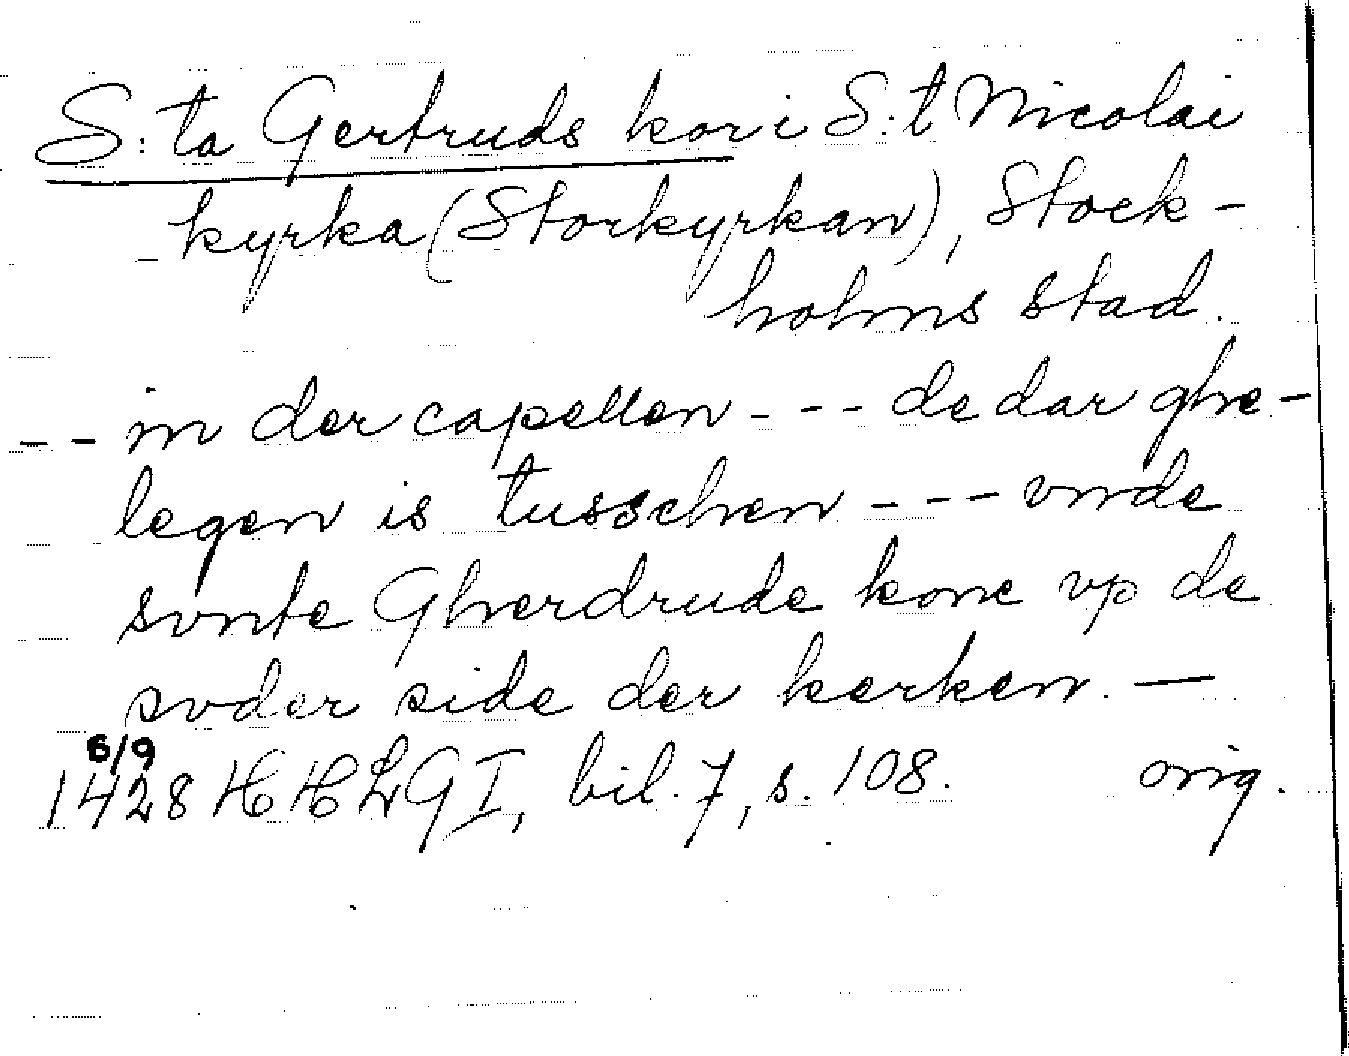 S:ta Gertruds kor i S:t Nicolai
kyrka (Storkyrkan), Stock-
holms stad.
-- in der capellen --- de dar ghe-
legen is tusschen --- vnde
svnte Gherdrude kone vp de
svder side der kerken. —
6/9
1428 HHLG I, bil. 7, s. 108. orig.